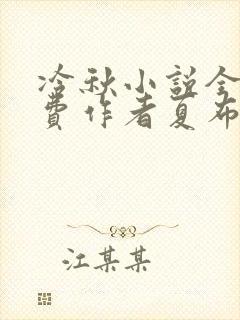 冷秋小説全
費作者夏布
江某某